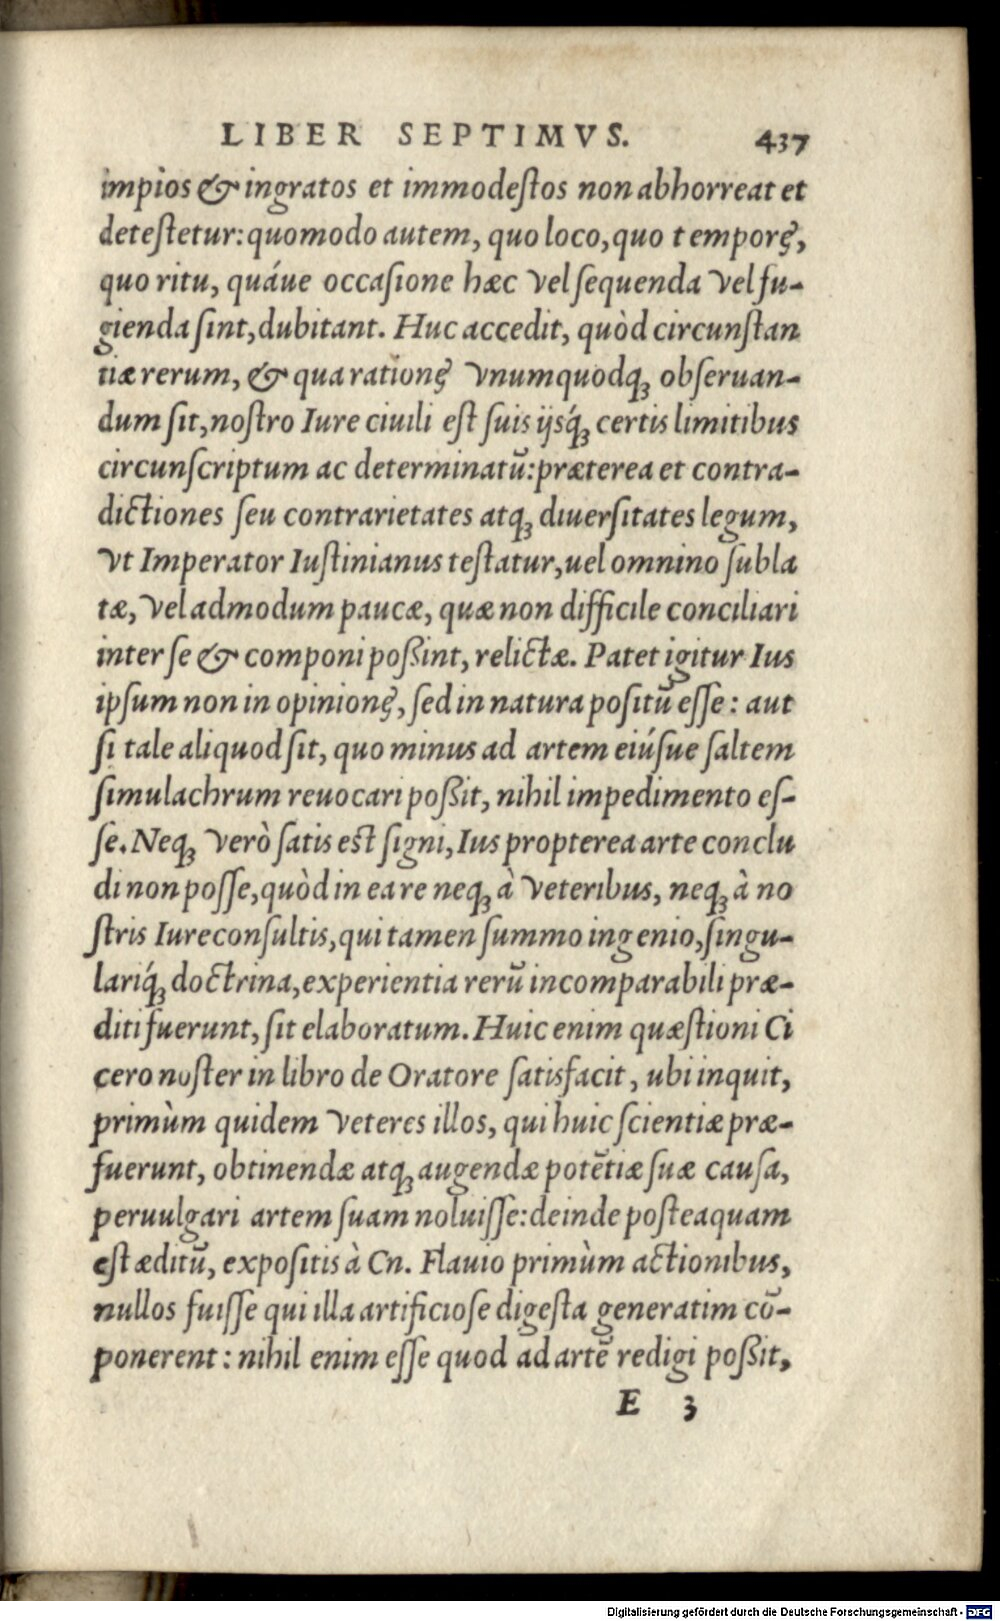 LIBER SEPTIMVS. 437
impios & ingratos et immodeſtos non abhorreat et
deteſtetur: quomodo autem, quo loco, quo temporę,
quo ritu, quáue occaſione hæc vel ſequenda vel fu-
gienda ſint, dubitant. Huc accedit, quòd circunſtan
tiæ rerum, & qua rationę vnumquodq; obſeruan-
dum ſit, noſtro Iure ciuili eſt ſuis ijsq́; certis limitibus
circunſcriptum ac determinatū: præterea et contra-
dictiones ſeu contrarietates atq; diuerſitates legum,
vt Imperator Iuſtinianus teſtatur, uel omnino ſubla
tæ, vel admodum paucæ, quæ non difficile conciliari
inter ſe & componi poßint, relictæ. Patet igitur Ius
ipſum non in opinionę, ſed in natura poſitū eſſe: aut
ſi tale aliquod ſit, quo minus ad artem eiúſue ſaltem
ſimulachrum reuocari poßit, nihil impedimento eſ-
ſe. Neq; verò ſatis eſt ſigni, Ius propterea arte conclu
di non poſſe, quòd in ea re neq; à veteribus, neq; à no
ſtris Iureconſultis, qui tamen ſummo ingenio, ſingu-
lariq́; doctrina, experientia rerū incomparabili præ-
diti fuerunt, ſit elaboratum. Huic enim quæſtioni Ci
cero noſter in libro de Oratore ſatisfacit, ubi inquit,
primùm quidem veteres illos, qui huic ſcientiæ præ-
fuerunt, obtinendæ atq; augendæ potētiæ ſuæ cauſa,
peruulgari artem ſuam noluiſſe: deinde poſteaquam
eſt æditū, expoſitis à Cn. Flauio primùm actionibus,
nullos fuiſſe qui illa artificioſe digeſta generatim cō-
ponerent: nihil enim eſſe quod ad artē redigi poßit,
E 3
Digitalisierung gefördert durch die Deutsche Forschungsgemeinschaft - DFG